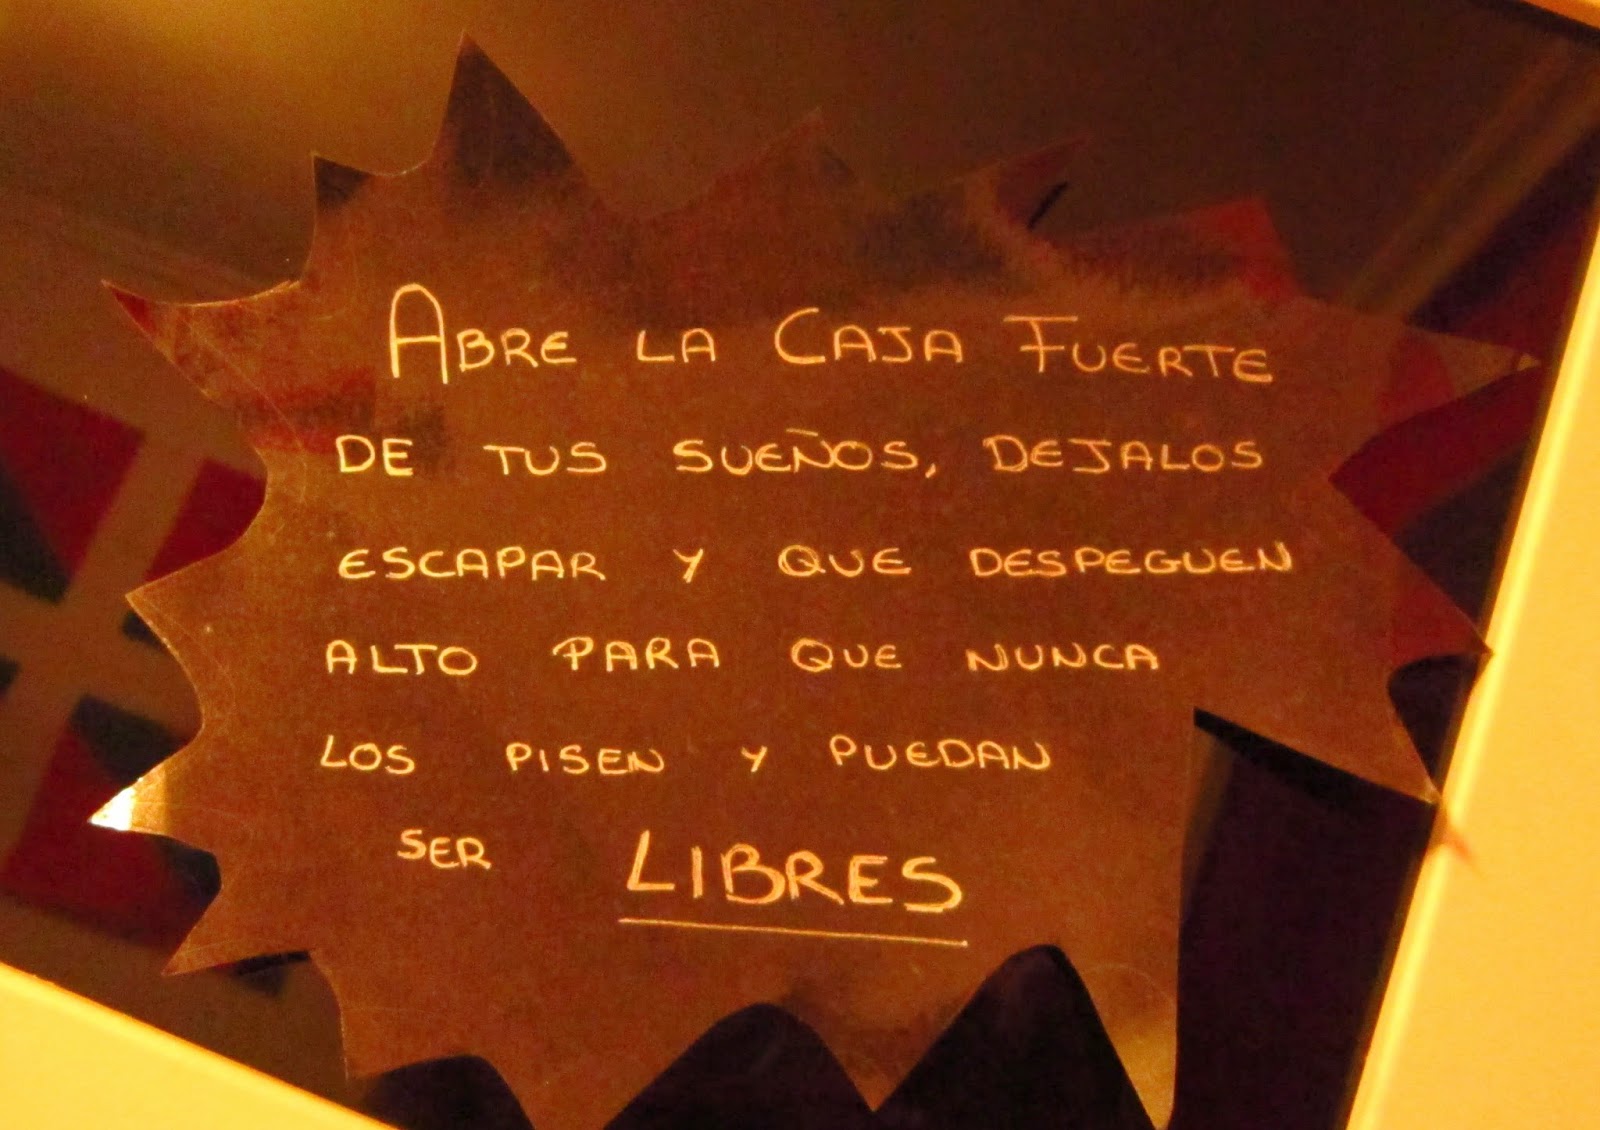 ABRE LA CAJA FUERTE
DE TUS SUEÑOS, DEJALOS
ESCAPAR Y QUE DESPEGUEN
ALTO PARA QUE NUNCA
LOS PISEN Y PUEDAN
SER LIBRES